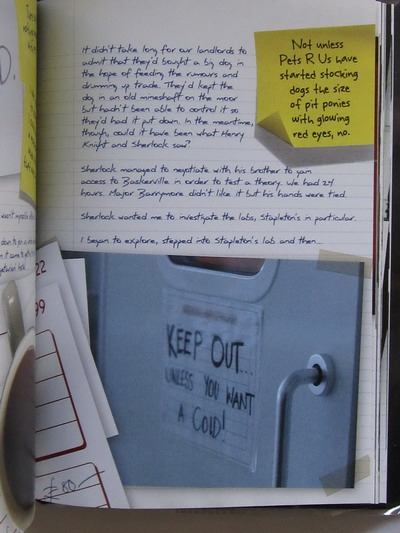 It didn't take long for our landlords to
admit that they'd bought a big dog in
the hope of feeding the rumours and
drumming up trade. They'd kept the
dog in an old mineshaft on the moor
but hadn't been able to control it so
they'd had it put down. In the meantime,
though, could it have been what Henry
Knight and Sherlock saw?
Not unless
Pets R Us have
started stocking
dogs the size
of pit ponies
with glowing
red eyes, no.
Sherlock managed to negotiate with his brother to gain
access to Baskerville in order to test a theory. We had 24
hours. Major Barrymore didn't like it but his hands were tied.
Sherlock wanted me to investigate the labs, Stapleton's in particular.
I began to explore, stepped into Stapleton's lab and then...
KEEP OUT...
UNLESS YOU WANT
A COLD!
22
99